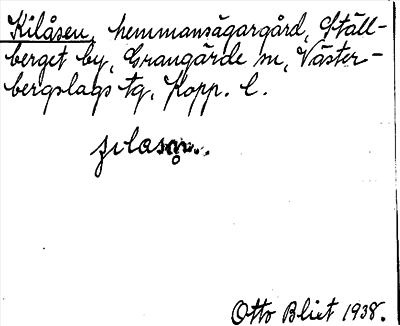 Kilåsen, hemmansägargård, Ställ-
berget by, Grangärde sn, Väster-
bergslags tg, Kopp. l.
Otto Blixt 1938.